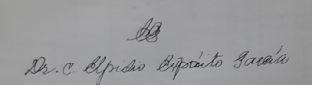 Dr. C. Elpidio Expósito García